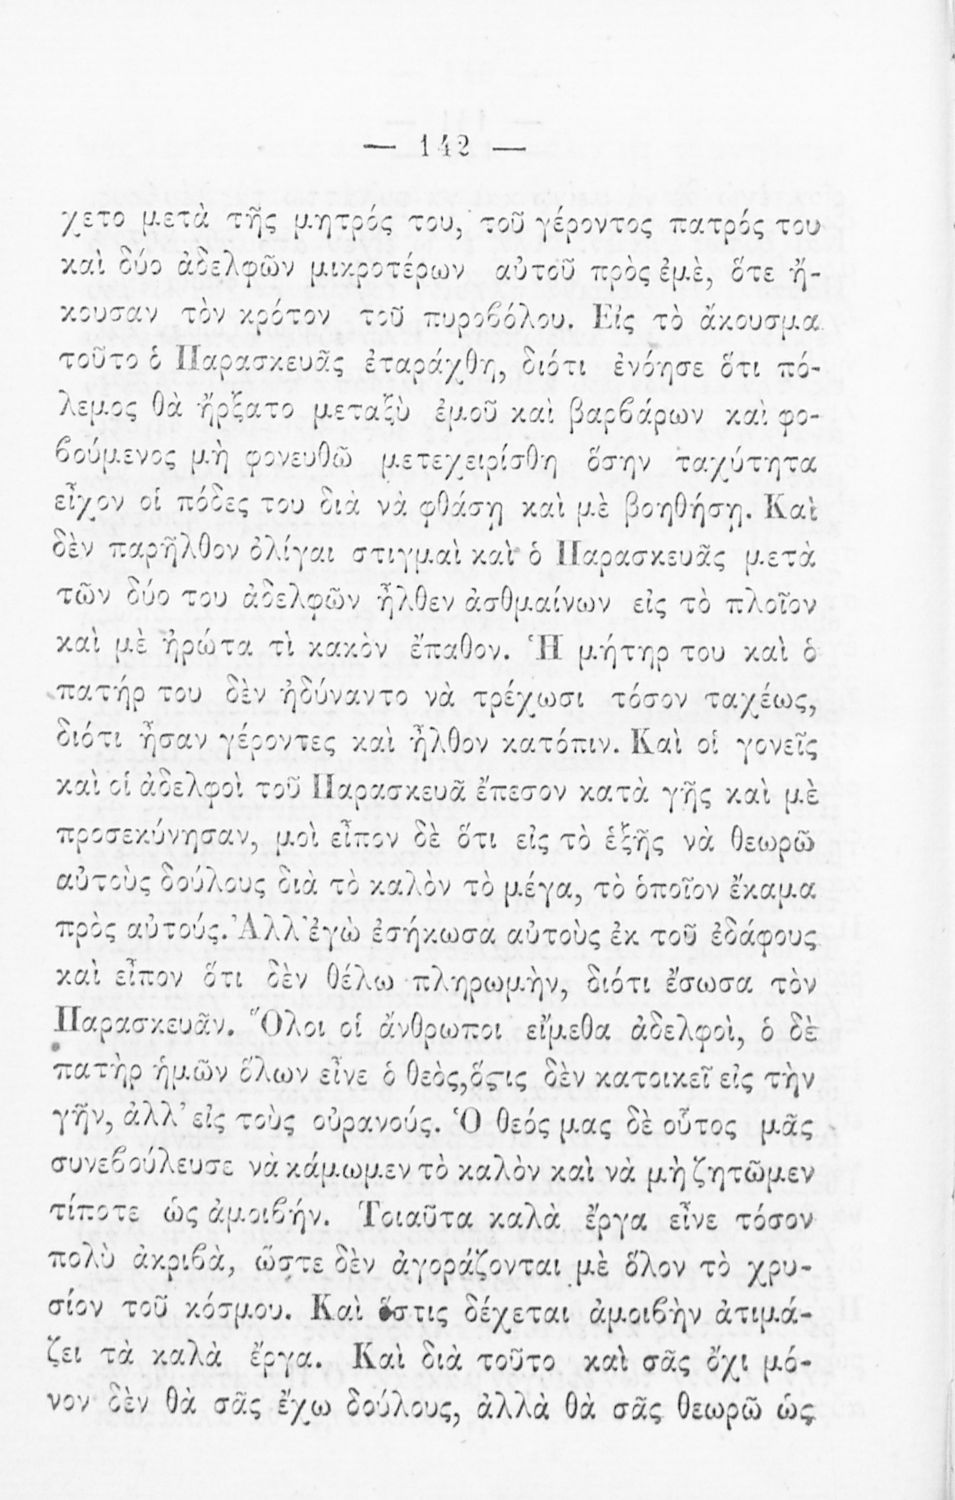 — 142 —
χετο μετὰ τῆς μητρός του, τοῦ γέροντος πατρός του
καὶ δύο ἀδελφῶν μικροτέρων αὐτοῦ πρὸς ἐμὲ, ὅτε ἤ-
κουσαν τὸν κρότον τοῦ πυροβόλου. Εἰς τὸ ἄκουσμα
τοῦτο ὁ Παρασκευᾶς ἐταράχθη, διότι ἐνόησε ὅτι πό-
λεμος θὰ ἤρξατο μεταξὺ ἐμοῦ καὶ βαρϐάρων καὶ φο-
ϐούμενος μὴ φονευθῶ μετεχειρίσθη ὅσην ταχύτητα
εἶχον οἱ πόδες του διὰ νὰ φθάσῃ καὶ μὲ βοηθήσῃ. Καὶ
δὲν παρῆλθον ὀλίγαι στιγμαὶ καὶ ὁ Παρασκευᾶς μετὰ
τῶν δύο του ἀδελφῶν ἦλθεν ἀσθμαίνων εἰς τὸ πλοῖον
καὶ μὲ ἠρώτα τὶ κακὸν ἔπαθον. Ἡ μήτηρ του καὶ ὁ
πατήρ του δὲν ἠδύναντο νὰ τρέχωσι τόσον ταχέως,
διότι ἦσαν γέροντες καὶ ἦλθον κατόπιν. Καὶ οἱ γονεῖς
καὶ οἱ ἀδελφοὶ τοῦ Παρασκευᾶ ἔπεσον κατὰ γῆς καὶ μὲ
προσεκύνησαν, μοὶ εἶπον δὲ ὅτι εἰς τὸ ἑξῆς νὰ θεωρῶ
αὐτοὺς δούλους διὰ τὸ καλὸν τὸ μέγα, τὸ ὁποῖον ἔκαμα
πρὸς αὐτούς. Ἀλλ' ἐγὼ ἐσήκωσα αὐτοὺς ἐκ τοῦ ἐδάφους
καὶ εἶπον ὅτι δὲν θέλω πληρωμὴν, διότι ἔσωσα τὸν
Παρασκευᾶν. Ὅλοι οἱ ἄνθρωποι εἴμεθα ἀδελφοὶ, ὁ δὲ
πατὴρ ἡμῶν ὅλων εἶνε ὁ θεὸς, ὅςτις δὲν κατοικεῖ εἰς τὴν
γῆν, ἀλλ' εἰς τοὺς οὐρανούς. Ὁ θεός μας δὲ οὗτος μᾶς
συνεϐούλευσε νὰ κάμωμεν τὸ καλὸν καὶ νὰ μὴ ζητῶμεν
τίποτε ὡς ἀμοιϐήν. Τοιαῦτα καλὰ ἔργα εἶνε τόσον
πολὺ ἀκριϐὰ, ὥστε δὲν ἀγοράζονται μὲ ὅλον τὸ χρυ-
σίον τοῦ κόσμου. Καὶ ὅστις δέχεται ἀμοιϐὴν ἀτιμά-
ζει τὰ καλὰ ἔργα. Καὶ διὰ τοῦτο καὶ σᾶς ὄχι μό-
νον δὲν θὰ σᾶς ἔχω δούλους, ἀλλὰ θὰ σᾶς θεωρῶ ὡς